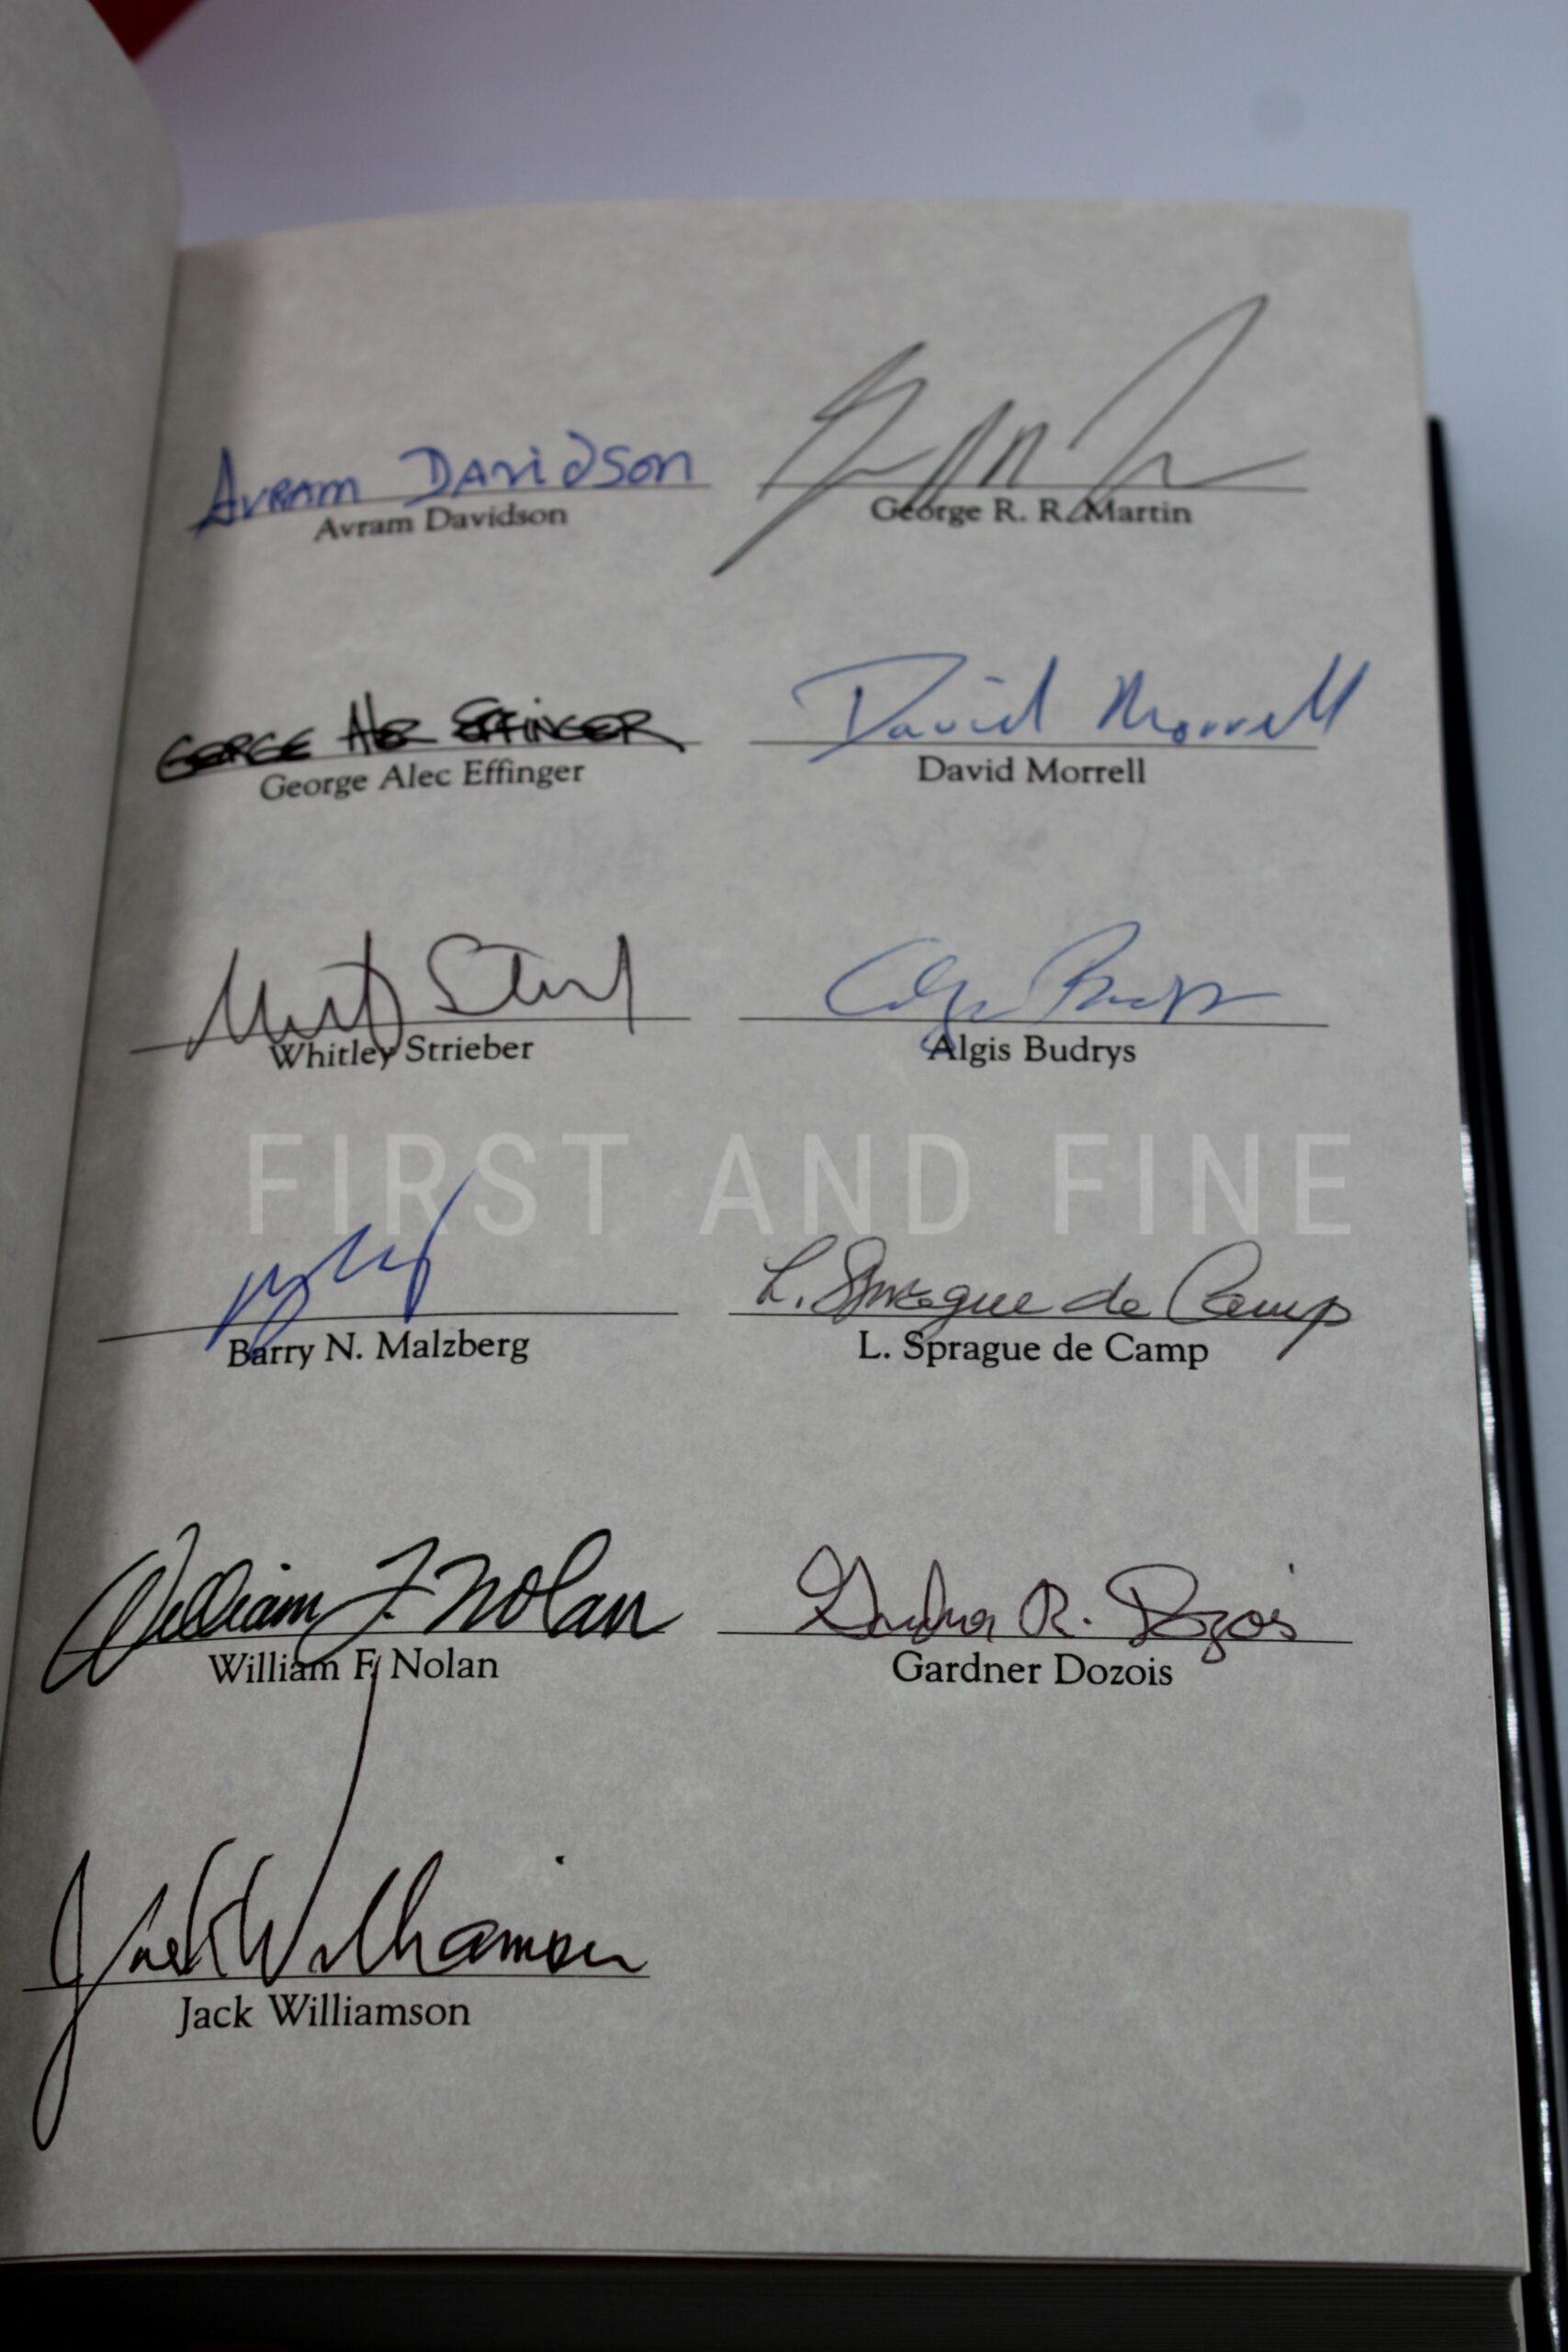 Avram Davidson
Avram Davidson
George R. R. Martin
George Alec Effinger
George Alec Effinger
David Morrell
David Morrell
Whitley Strieber
Algis Budrys
FIRST AND FINE
Barry N. Malzberg
L. Sprague de Camp
L. Sprague de Camp
William F. Nolan
William F. Nolan
Gardner R. Dozois
Gardner Dozois
Jack Williamson
Jack Williamson